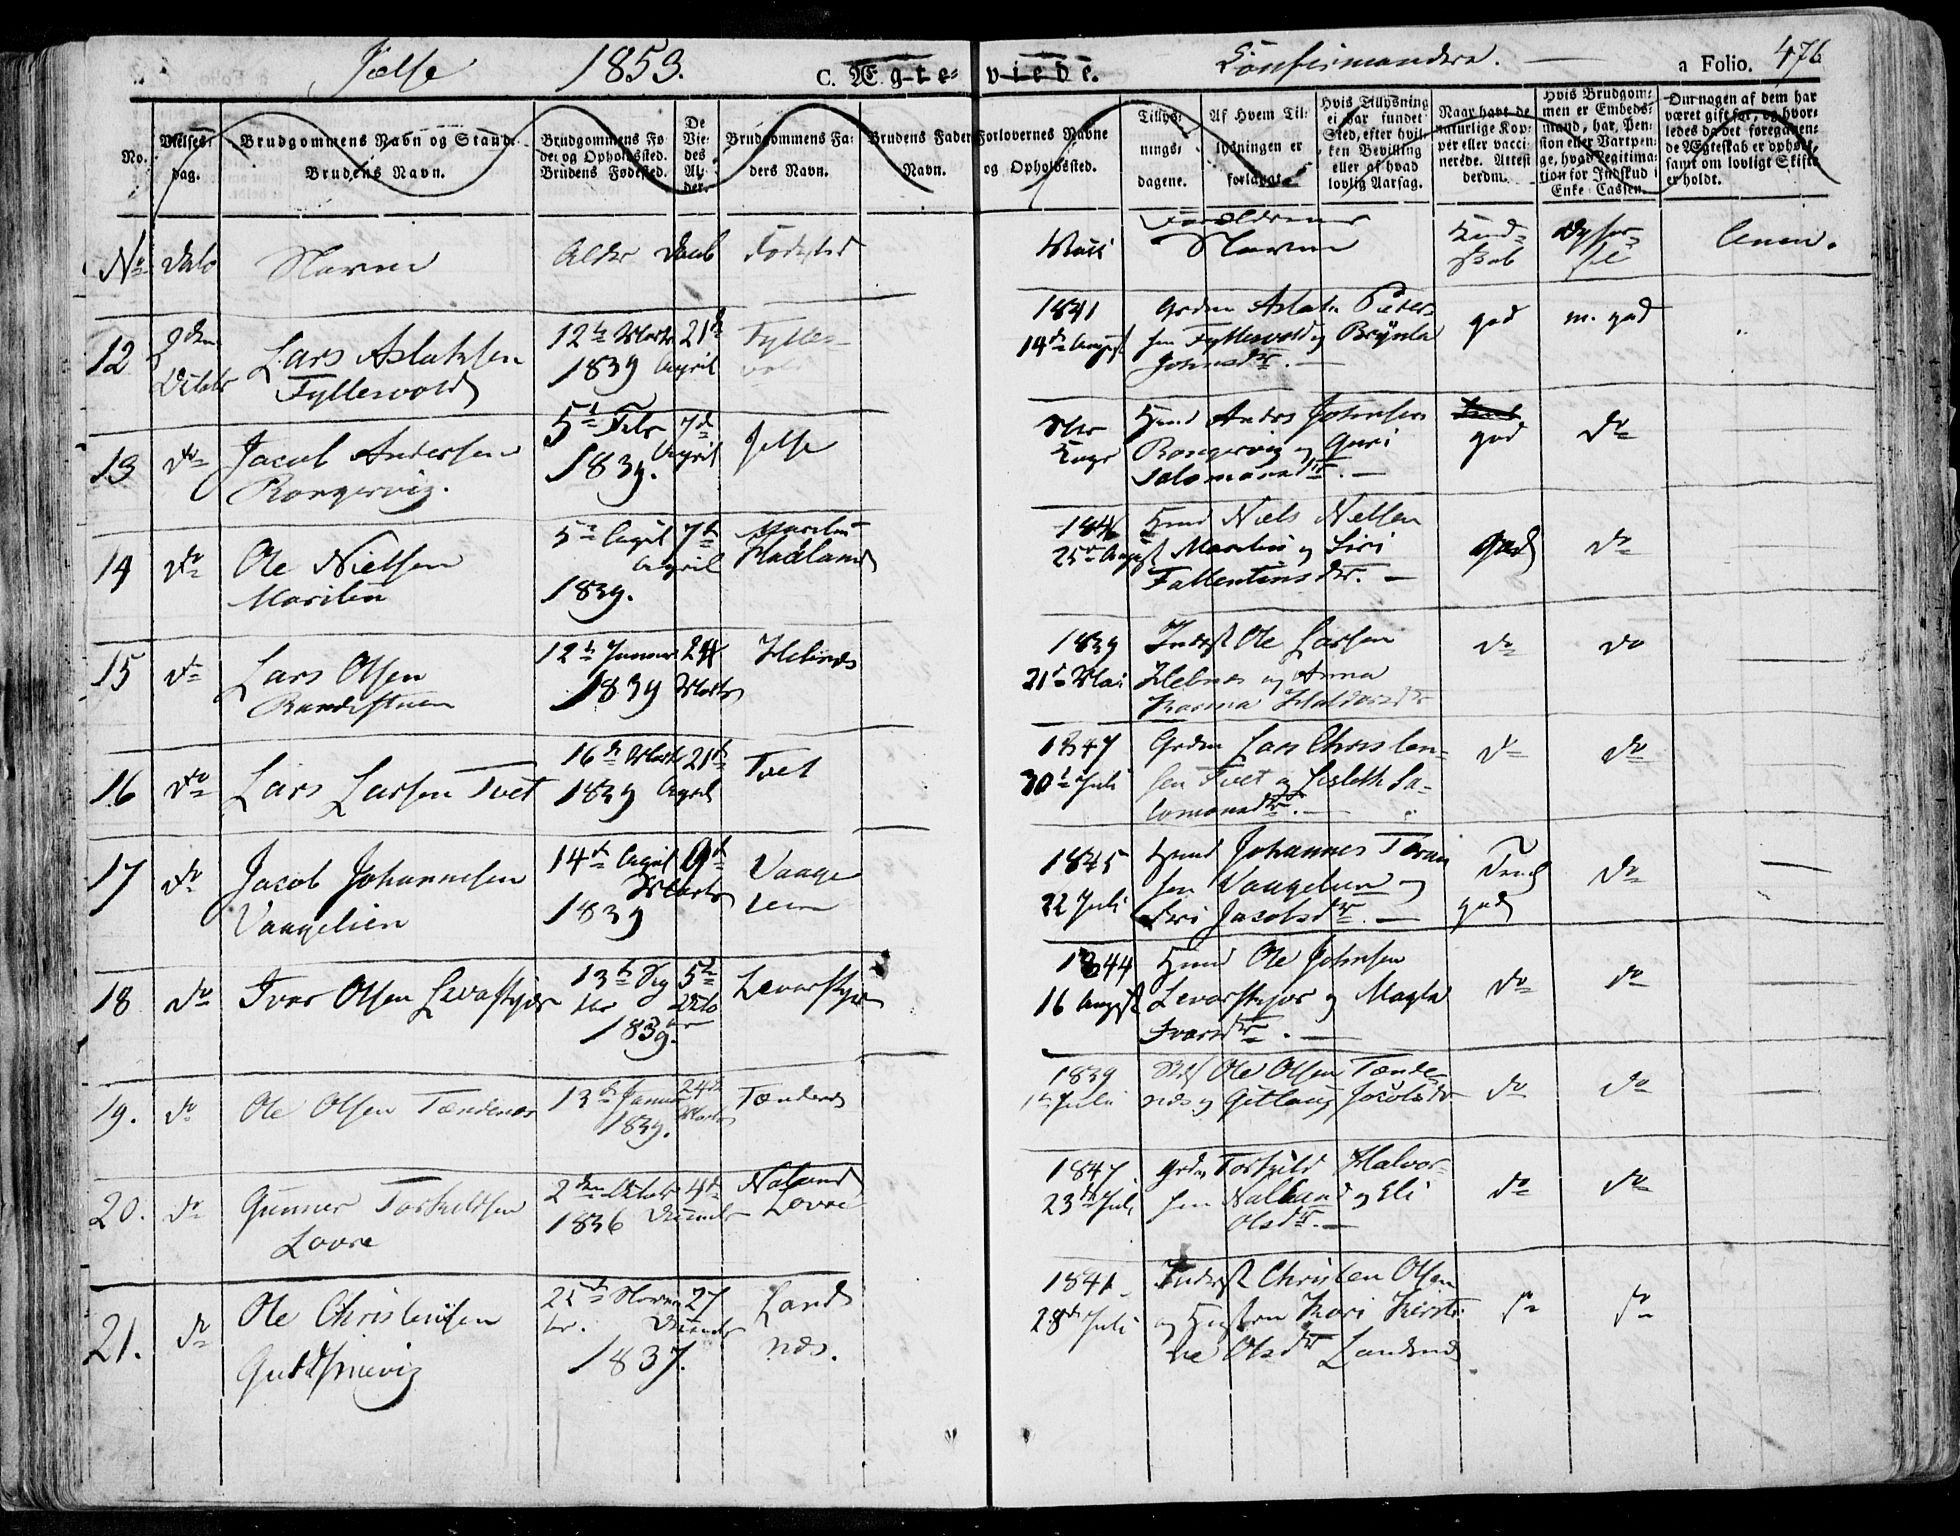 Jelse 1853. C. Ægte-viede. Confirmandere. a Folio. 476
No.
Vielses-dag.
Brudgommens Navn og Stand.
Brudens Navn.
Brudgommens Fødet og Opholdssted.
Brudens Fødested.
De Viedes Alder.
Brudgommens Faders Navn.
Brudens Faders Navn.
Forlovernes Navne og Opholdssted.
Tillysningsdagene.
Af Hvem Tillysningen er forlangt.
Hvis Tillysning ei har fundet Sted, efter hvilken Bevilling eller af hvad lovlig Aarsag.
Naar havt de naturlige Kopper eller vaccinerede. Attest derom.
Hvis Brudgommen er Embedsmand, har Pension eller Vartpenge, hvad Legitimation for Indskud i Enke-Cassen.
Om nogen af dem har været gift før, og hvorledes da det foregaaende Ægteskab er ophævet, samt om lovligt Skifte er holdt.
No Dato Navn Alder Daab Fødested Vacc Forældrenes Navne Kundskab Opførsel Anm.
12 2den Octobr Lars Aslaksen Fyllesvold 12te Marts 1839 21de April Fyllesvold 1841 14de August Grdm Aslak Peders sen Fyllesvold og Brynla Johnsdtr. — god m. god
13 do Jacob Andersen Rongevig. 5te Febr 1839. 7de April Jelse Hmd Anders Johnsen Rongevig og Guri Salomonsdtr. — god do
14 do Ole Nielsen Marilien 5te April 1839. 7de April Marilien Hadland 25de August Hmd Niels Nielsen Marilien og Siri Fallentinsdtr. — God do
15 do Lars Olsen 12te Januar 1839 24 Marts Hebnes 1839 21de Mai Inderst Ole Larsen Hebnes og Anna Karina Haldorsdtr do do
16 do Lars Larsen Tvet 16de Marts 1839 21de April Tvet 1847 30te Juli Grdm Lars Christensen Tvet og Lisbeth Salomonsdtr. — do do
17 do Jacob Johannesen Vaagelien 14de April 1839 9de Marts Vaage lien 1845 22 Juli Hmd Johannes sen Vaagelien og Siri Jacobsdtr. — god do
18 do Iver Olsen Levarskjær 13de 1839. 5te Levarskjær 1844 16 August Hmd Ole Johnsen Levarskjær og Magla Iversdtr. — do do
19. do Ole Olsen Tændenes 13de Januar 1839. 24de Marts Tændenes 1839 Juli Ole Olsen Tændenes og Gitlaug Jacobsdtr do do
20. do Gunner Torkildsen Lovre 2den Octobr 1836 4de Decembr Naland Lovre 1847 23de Juli Grdm Torkild Halvorsen Naland og Eli Olsdtr. — do do
21. do Ole Christensen 25de Novembr. 1837. 27 Decembr Landsnes. 1841 28de Juli Inderst Christen Olsen og Hustru Kari Kirstine Olsdtr Landsnes do do